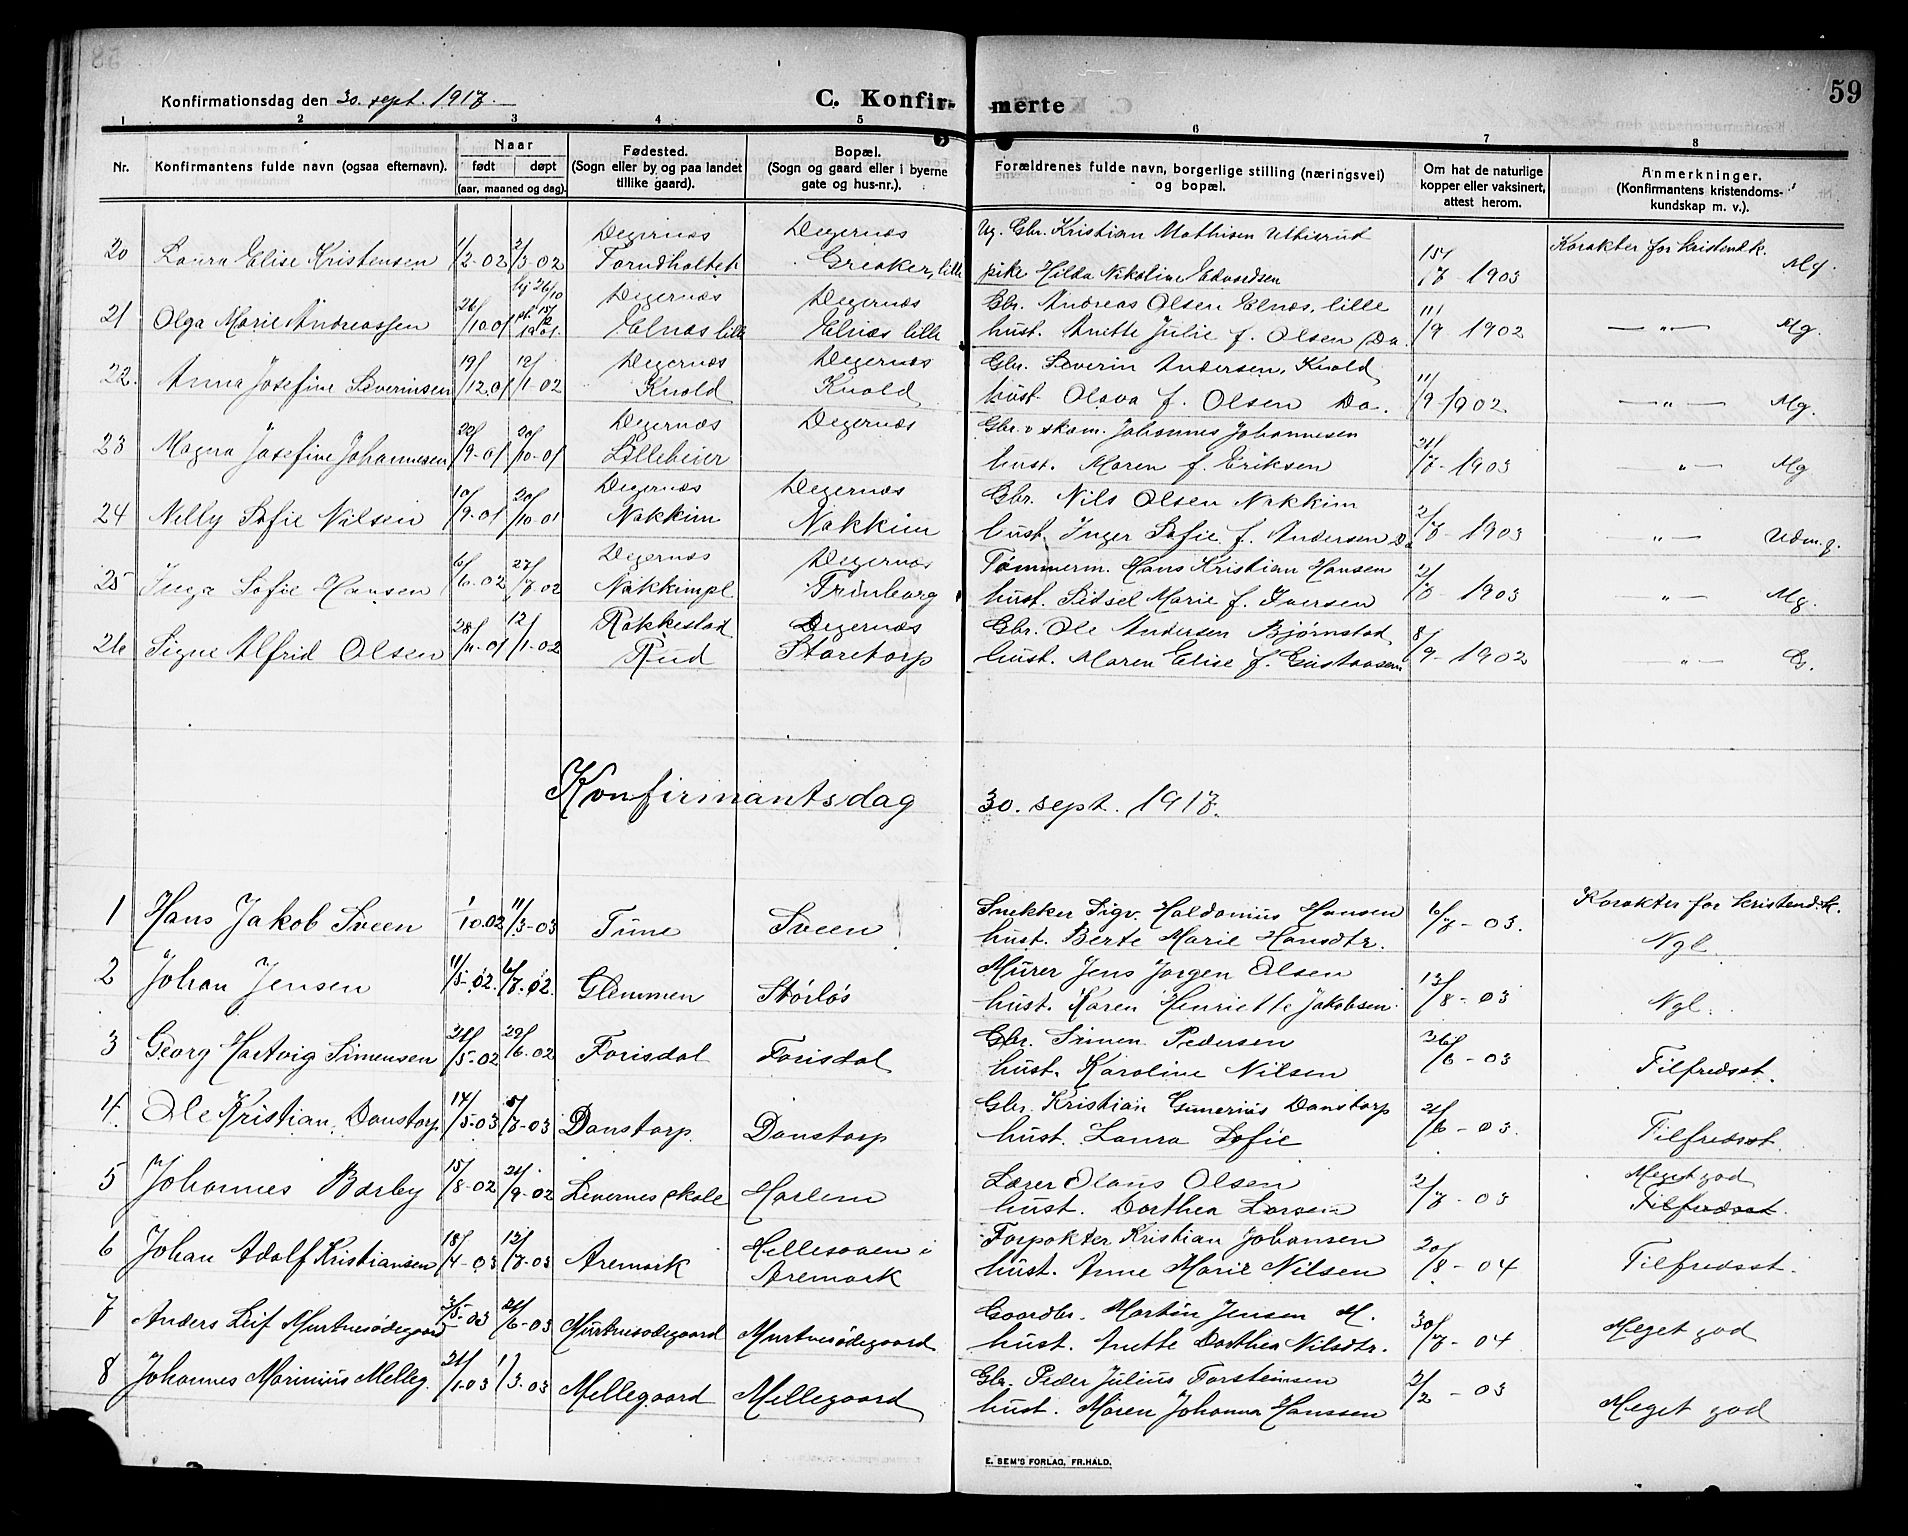 Konfirmationsdag den 30. sept. 1917.
C. Konfir-merte
59
1 2 3 4 5 6 7 8
Nr.
Konfirmantens fulde navn (ogsaa efternavn).
Naar
født døpt
(aar, maaned og dag).
Fødested.
(Sogn eller by og paa landet
tillike gaard).
Bopæl.
(Sogn og gaard eller i byerne
gate og hus-nr.).
Forældrenes fulde navn, borgerlige stilling (næringsvei)
og bopæl.
Om hat de naturlige
kopper eller vaksinert,
attest herom.
Anmerkninger.
(Konfirmantens kristendoms-
kundskap m. v.).
Degernæs Degernæs Ug. Gbr. Kristian Mathisen Ultisrud Karakter for kristendk.
20 Laura Elise Kristensen 1/2-02 2/3-02 Torudholtet Greaker, lille pike Hilda Nikoline Edvardsen 15/7-1903 Mg.
Degernæs Degernæs Gbr. Andreas Olsen Elnæs, lille
21 Olga Marie Andreassen 26/10.01 hj 26/10 Elnæs lille Elnæs lille hust. Anette Julie f. Olsen Do. 11/9 1902 — „ — Mg.
Degernæs Degernæs Gbr. Severin Andersen, Knold
22. Anna Josefine Severinsen 19/12.01 12/1-02 Knold Knold hust. Olava f. Olsen Do. 11/9-1902 — „ — Mg.
Degernæs Degernæs Gbr. v skom. Johannes Johannesen
23 Magna Josefine Johannesen 22/9-01 20/10-01 Lillebeier hust. Maren f. Eriksen 21/7-1903 „ — Mg
Degernæs Degernæs Gbr. Nils Olsen Nakkim
24 Nelly Sofie Nilsen 10/9-01 20/10-01 Nakkim Nakkim hust. Inger Sofie f. Andersen Do 2/7-1903 „ — Udm.g.
Degernæs Degernæs Tømmerm. Hans Kristian Hansen
25 Inga Sofie Hansen 6/6-02 27/7-02 Nakkimpl Trinborg hust. Sidsel Marie f. Iversen 2/7-1903 „ — Mg.
Rakkestad Degernæs Gbr. Ole Andersen Bjørnstad
26 Signe Alfrid Olsen 28/11-01 12/1-02 Rud Storetorp hust. Maren Elise f. Gustavsen 8/9-1902 „ — G.
Konfirmantsdag 30. sept. 1917.
Snekker Sigv. Haldanius Hansen Karakter for kristend.k.
1 Hans Jakob Sveen 1/10.02 11/3-03 Tune Sveen hust. Berte Marie Hansdtr. 6/7-03. Ngl.
Murer Jens Jørgen Olsen
2 Johan Jensen 11/5-02. 6/7-02. Glemmen Størløs hust. Karen Henriette Jakobsen. 13/8-03 Ngl.
Gbr. Simen Pedersen
3 Georg Hartvig Simensen 21/5-02 29/6-02 Forisdal Forisdal hust. Karoline Nilsen 26/6-03 Tilfredsst.
Gbr. Kristian Gunerius Danstorp
4. Ole Kristian Danstorp 14/5-03 5/7-03 Danstorp Danstorp hust. Laura Sofie 21/6-03. Tilfredsst.
Lærer Olaus Olsen Meget god
5 Johannes Barby 15/8-02 21/9-02 Levernes skole Harlem hust. Dorthea Larsen 2/7-03 Tilfredsst.
Forpakter Kristian Johansen
6 Johan Adolf Kristiansen 18/4-03 12/7-03 Aremark Hellesaaen i Aremark hust. Anne Marie Nilsen 20/8-04 Tilfredsst.
Gaardbr. Martin Jensen M.
7 Anders Leif Murtnesødegaard 3/5-03 21/6-03 Murtnesødegaard Murtnesødegaard hust. Anette Dorthea Nilsdtr. 30/7-04 Meget god
Gbr. Peder Julius Torsteinsen
8 Johannes Marinius Melleg. 21/1-03 1/3-03 Mellegaard Mellegaard hust. Maren Johanna Hanssen 2/2-03 Meget god
E. SEM'S FORLAG, FR.HALD.